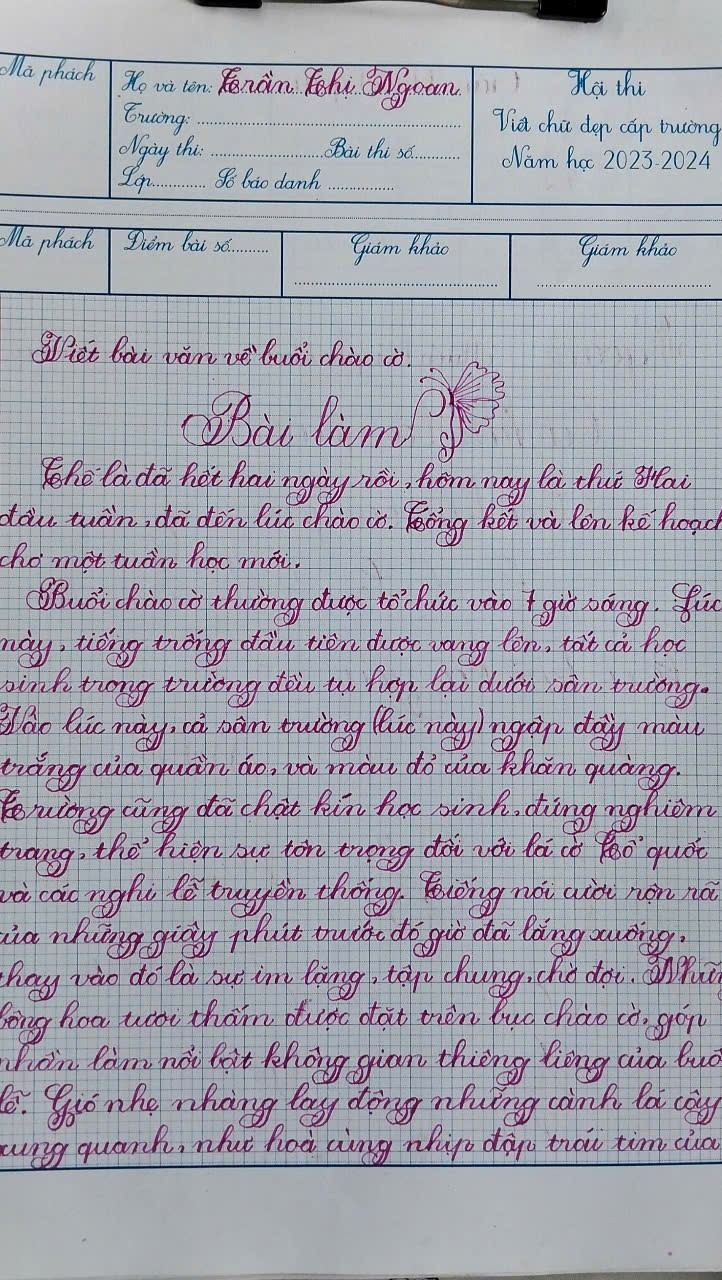 Mã phách
Họ và tên: Trần Thị Ngoan
Trường: ..........
Ngày thi: .......... Bài thi số ..........
Lớp .......... Số báo danh ..........
Hội thi
Viết chữ đẹp cấp trường
Năm học 2023-2024
Mã phách
Điểm bài số ..........
Giám khảo
Giám khảo
Viết bài văn về buổi chào cờ.
Bài làm
Thế là đã hết hai ngày rồi, hôm nay là thứ Hai
đầu tuần, đã đến lúc chào cờ. Tổng kết và lên kế hoạch
cho một tuần học mới.
Buổi chào cờ thường được tổ chức vào 7 giờ sáng. Lúc
này, tiếng trống đầu tiên được vang lên, tất cả học
sinh trong trường đều tụ họp lại dưới sân trường.
Vào lúc này, cả sân trường (lúc này) ngập đầy màu
trắng của quần áo, và màu đỏ của khăn quàng.
Trường cũng đã chật kín học sinh, đứng nghiêm
trang, thể hiện sự tôn trọng đối với lá cờ Tổ quốc
và các nghi lễ truyền thống. Tiếng nói cười rộn rã
của những giây phút trước đó giờ đã lắng xuống,
thay vào đó là sự im lặng, tập chung, chờ đợi. Những
bông hoa tươi thắm được đặt trên bục chào cờ, góp
phần làm nổi bật không gian thiêng liêng của buổi
lễ. Gió nhẹ nhàng lay động những cành lá cây
xung quanh, như hoà cùng nhịp đập trái tim của